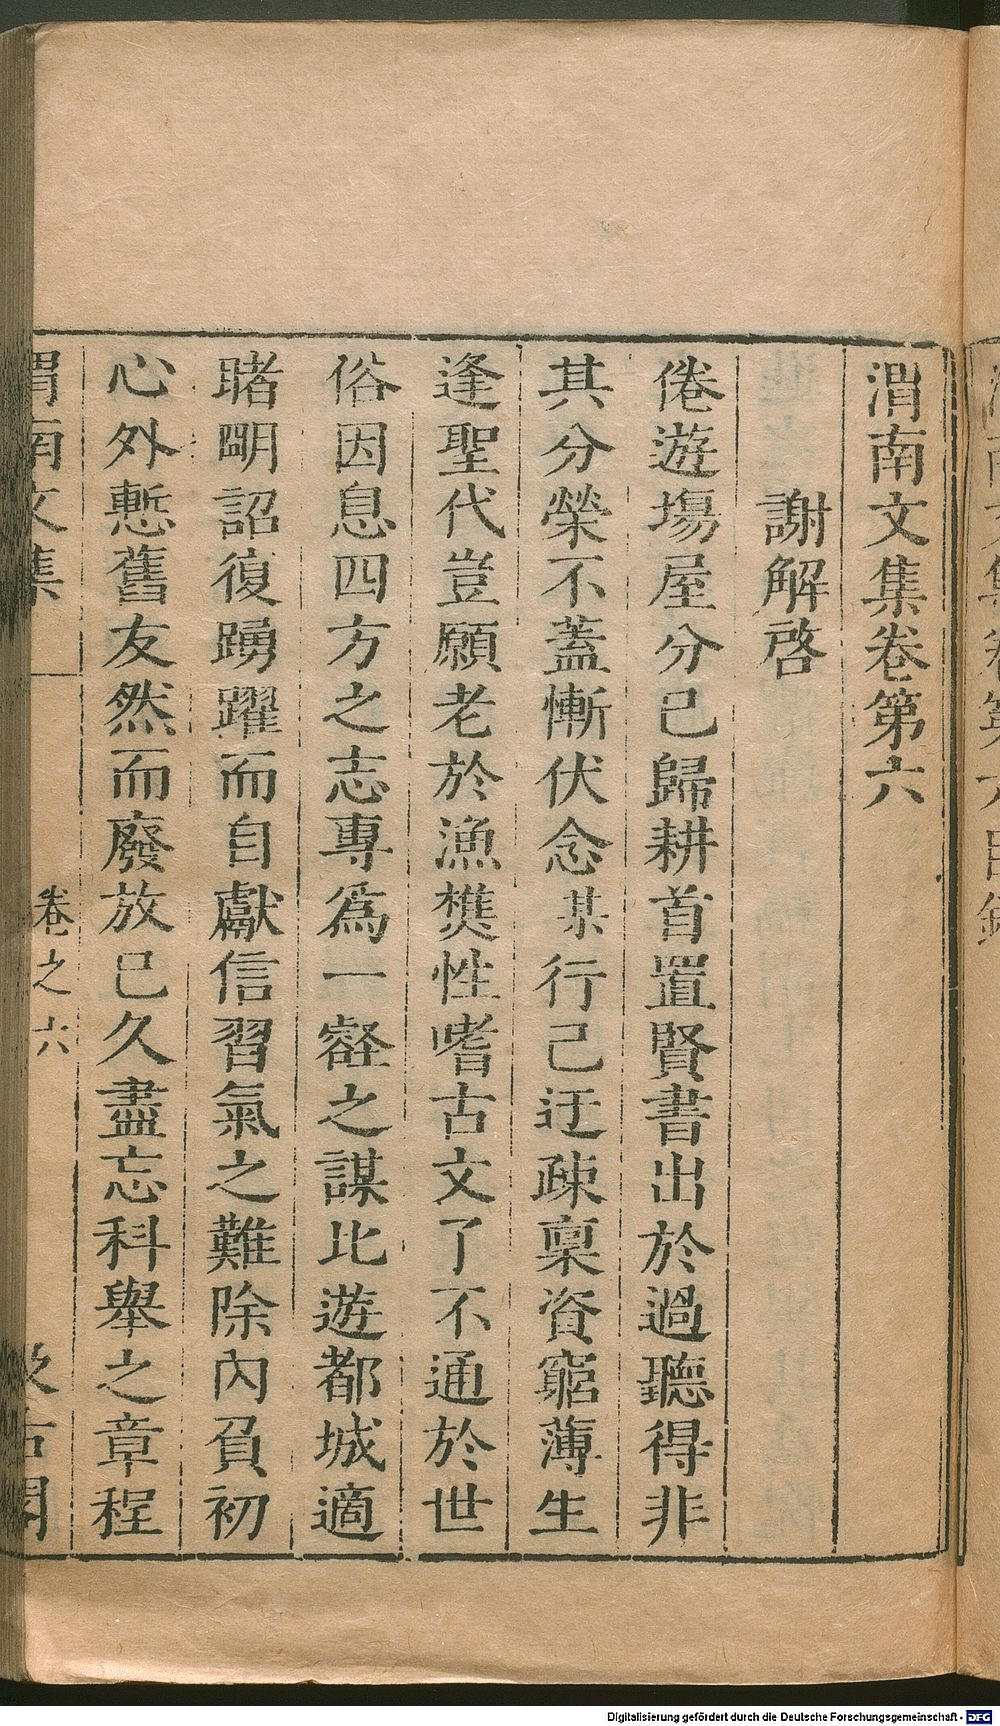 渭南文集卷第六
謝解啓
倦遊塲屋分已歸耕首置賢書出於過聽得非
其分榮不蓋慚伏念某行己迂疎稟資窮薄生
逢聖代豈願老於漁樵性嗜古文了不通於世
俗因息四方之志專爲一壑之謀比遊都城適
睹明詔復踴躍而自獻信習氣之難除內負初
心外慙舊友然而廢放已久盡忘科舉之章程
渭南文集 卷之六 汲古閣
Digitalisierung gefördert durch die Deutsche Forschungsgemeinschaft - DFG